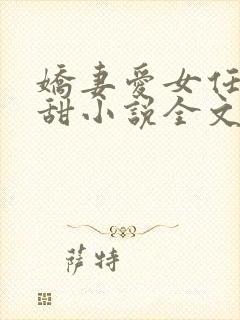 嬌妻愛女任
甜小說全文
萨特